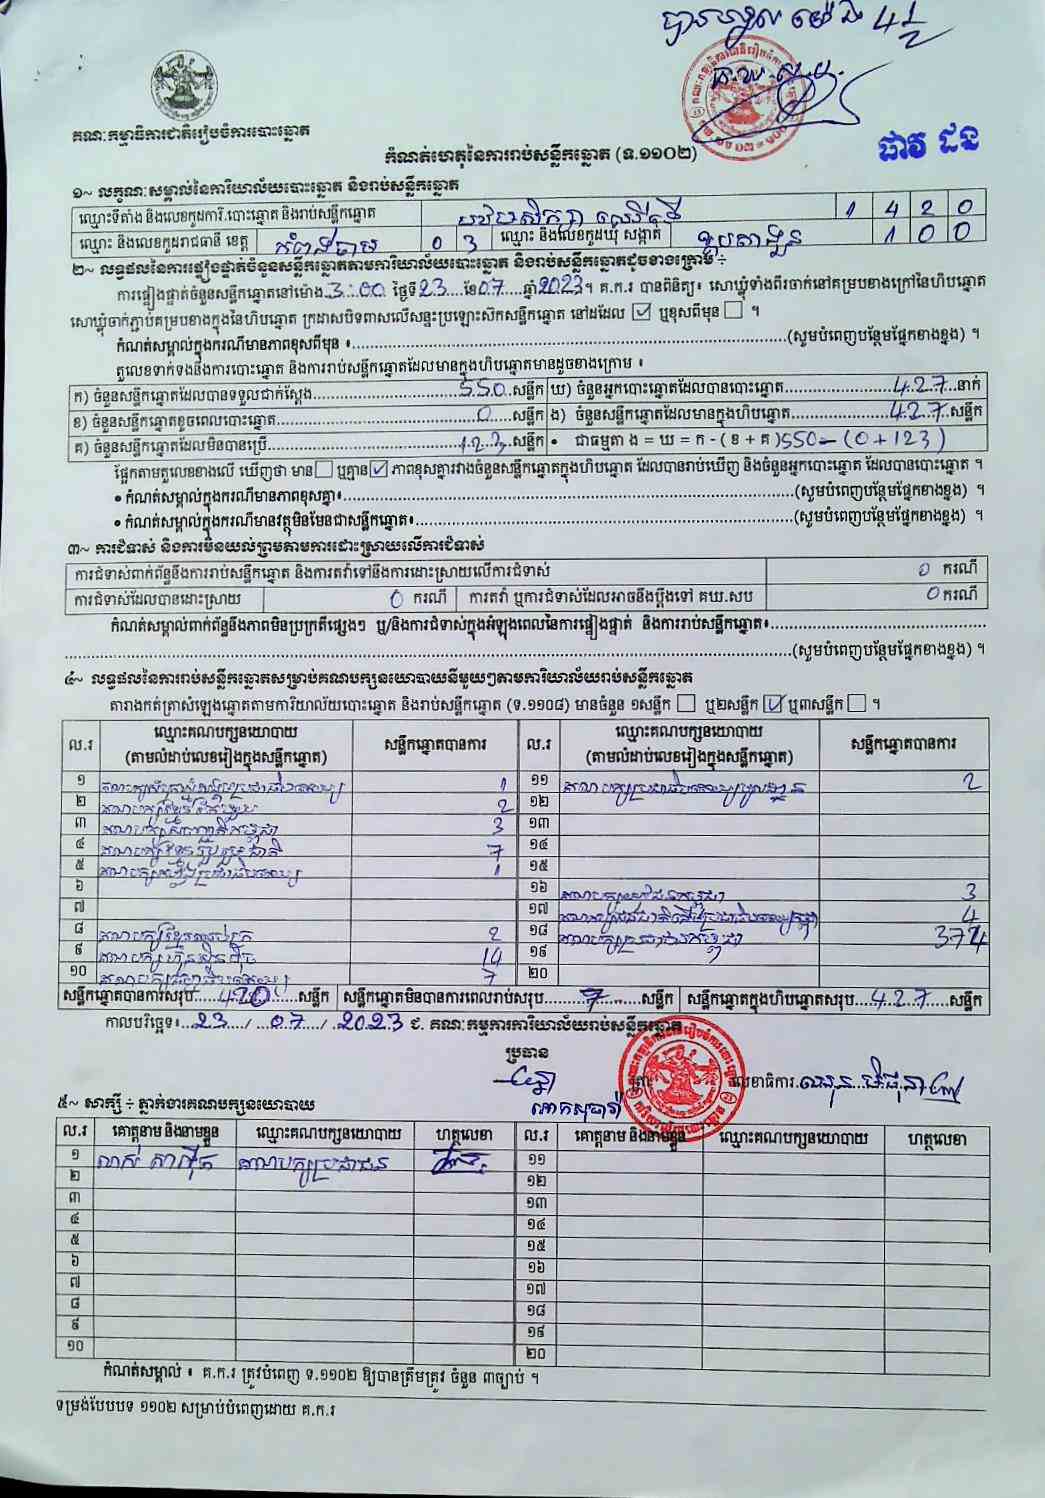 គណៈកម្មាធិការជាតិរៀបចំការបោះឆ្នោត
កំណត់ហេតុនៃការរាប់សន្លឹកឆ្នោត (ទ.១១០២)
១~ លក្ខណៈសម្គាល់នៃការិយាល័យបោះឆ្នោត និងរាប់សន្លឹកឆ្នោត
ឈ្មោះទីតាំង និងលេខកូដការិ.បោះឆ្នោត និងរាប់សន្លឹកឆ្នោត 1 4 2 0
ឈ្មោះ និងលេខកូដរាជធានី ខេត្ត កំពង់ចាម 0 3 ឈ្មោះ និងលេខកូដឃុំ សង្កាត់ 1 0 0
២~ លទ្ធផលនៃការផ្ទៀងផ្ទាត់ចំនួនសន្លឹកឆ្នោតតាមការិយាល័យបោះឆ្នោត និងរាប់សន្លឹកឆ្នោតដូចខាងក្រោម ÷
ការផ្ទៀងផ្ទាត់ចំនួនសន្លឹកឆ្នោតនៅម៉ោង 3:00 ថ្ងៃទី 23 ខែ 07 ឆ្នាំ 2023។ គ.ក.រ បានពិនិត្យ៖ សោឃ្លុំទាំងពីរចាក់នៅគម្របខាងក្រៅនៃហិបឆ្នោត
សោឃ្លុំចាក់ភ្ជាប់គម្របខាងក្នុងនៃហិបឆ្នោត ក្រដាសបិទពាសលើសន្ទះប្រឡោះសិកសន្លឹកឆ្នោត នៅដដែល ☑ ឬខុសពីមុន ☐ ។
កំណត់សម្គាល់ក្នុងករណីមានភាពខុសពីមុន ៖ (សូមបំពេញបន្ថែមផ្នែកខាងខ្នង) ។
តួលេខទាក់ទងនឹងការបោះឆ្នោត និងការរាប់សន្លឹកឆ្នោតដែលមានក្នុងហិបឆ្នោតមានដូចខាងក្រោម ៖
ក) ចំនួនសន្លឹកឆ្នោតដែលបានទទួលជាក់ស្តែង 550 សន្លឹក ឃ) ចំនួនអ្នកបោះឆ្នោតដែលបានបោះឆ្នោត 427 នាក់
ខ) ចំនួនសន្លឹកឆ្នោតខូចពេលបោះឆ្នោត 0 សន្លឹក ង) ចំនួនសន្លឹកឆ្នោតដែលមានក្នុងហិបឆ្នោត 427 សន្លឹក
គ) ចំនួនសន្លឹកឆ្នោតដែលមិនបានប្រើ 123 សន្លឹក • ជាធម្មតា ង = ឃ = ក - ( ខ + គ ) 550 - (0 + 123)
ផ្អែកតាមតួលេខខាងលើ ឃើញថា មាន ☐ ឬគ្មាន ☑ ភាពខុសគ្នារវាងចំនួនសន្លឹកឆ្នោតក្នុងហិបឆ្នោត ដែលបានរាប់ឃើញ និងចំនួនអ្នកបោះឆ្នោត ដែលបានបោះឆ្នោត ។
• កំណត់សម្គាល់ក្នុងករណីមានភាពខុសគ្នា៖ (សូមបំពេញបន្ថែមផ្នែកខាងខ្នង) ។
• កំណត់សម្គាល់ក្នុងករណីមានវត្ថុមិនមែនជាសន្លឹកឆ្នោត៖ (សូមបំពេញបន្ថែមផ្នែកខាងខ្នង) ។
៣~ ការជំទាស់ និងការមិនយល់ព្រមតាមការដោះស្រាយលើការជំទាស់
ការជំទាស់ពាក់ព័ន្ធនឹងការរាប់សន្លឹកឆ្នោត និងការតវ៉ាទៅនឹងការដោះស្រាយលើការជំទាស់ 0 ករណី
ការជំទាស់ដែលបានដោះស្រាយ 0 ករណី ការតវ៉ា ឬការជំទាស់ដែលអាចនឹងប្តឹងទៅ គឃ.សប 0 ករណី
កំណត់សម្គាល់ពាក់ព័ន្ធនឹងភាពមិនប្រក្រតីផ្សេងៗ ឬ/និងការជំទាស់ក្នុងអំឡុងពេលនៃការផ្ទៀងផ្ទាត់ និងការរាប់សន្លឹកឆ្នោត៖
(សូមបំពេញបន្ថែមផ្នែកខាងខ្នង) ។
៤~ លទ្ធផលនៃការរាប់សន្លឹកឆ្នោតសម្រាប់គណបក្សនយោបាយនីមួយៗតាមការិយាល័យរាប់សន្លឹកឆ្នោត
តារាងកត់ត្រាសំឡេងឆ្នោតតាមការិយាល័យបោះឆ្នោត និងរាប់សន្លឹកឆ្នោត (ទ.១១០៨) មានចំនួន ១សន្លឹក ☐ ឬ២សន្លឹក ☑ ឬ៣សន្លឹក ☐ ។
ល.រ ឈ្មោះគណបក្សនយោបាយ (តាមលំដាប់លេខរៀងក្នុងសន្លឹកឆ្នោត) សន្លឹកឆ្នោតបានការ ល.រ ឈ្មោះគណបក្សនយោបាយ (តាមលំដាប់លេខរៀងក្នុងសន្លឹកឆ្នោត) សន្លឹកឆ្នោតបានការ
១ 1 ១១ 2
២ 2 ១២
៣ 3 ១៣
៤ 7 ១៤
៥ 1 ១៥
៦ ១៦ 3
៧ ១៧ 4
៨ 2 ១៨ គណបក្សប្រជាជនកម្ពុជា 374
៩ 14 ១៩
១០ 7 ២០
សន្លឹកឆ្នោតបានការសរុប 420 សន្លឹក សន្លឹកឆ្នោតមិនបានការពេលរាប់សរុប 7 សន្លឹក សន្លឹកឆ្នោតក្នុងហិបឆ្នោតសរុប 427 សន្លឹក
កាលបរិច្ឆេទ៖ 23 / 07 / 2023 ជ. គណៈកម្មការការិយាល័យរាប់សន្លឹកឆ្នោត
ប្រធាន
លេខាធិការ
៥~ សាក្សី ÷ ភ្នាក់ងារគណបក្សនយោបាយ
ល.រ គោត្តនាម និងនាមខ្លួន ឈ្មោះគណបក្សនយោបាយ ហត្ថលេខា ល.រ គោត្តនាម និងនាមខ្លួន ឈ្មោះគណបក្សនយោបាយ ហត្ថលេខា
១ គណបក្សប្រជាជន ១១
២ ១២
៣ ១៣
៤ ១៤
៥ ១៥
៦ ១៦
៧ ១៧
៨ ១៨
៩ ១៩
១០ ២០
កំណត់សម្គាល់ ៖ គ.ក.រ ត្រូវបំពេញ ទ.១១០២ ឱ្យបានត្រឹមត្រូវ ចំនួន ៣ច្បាប់ ។
ទម្រង់បែបបទ ១១០២ សម្រាប់បំពេញដោយ គ.ក.រ